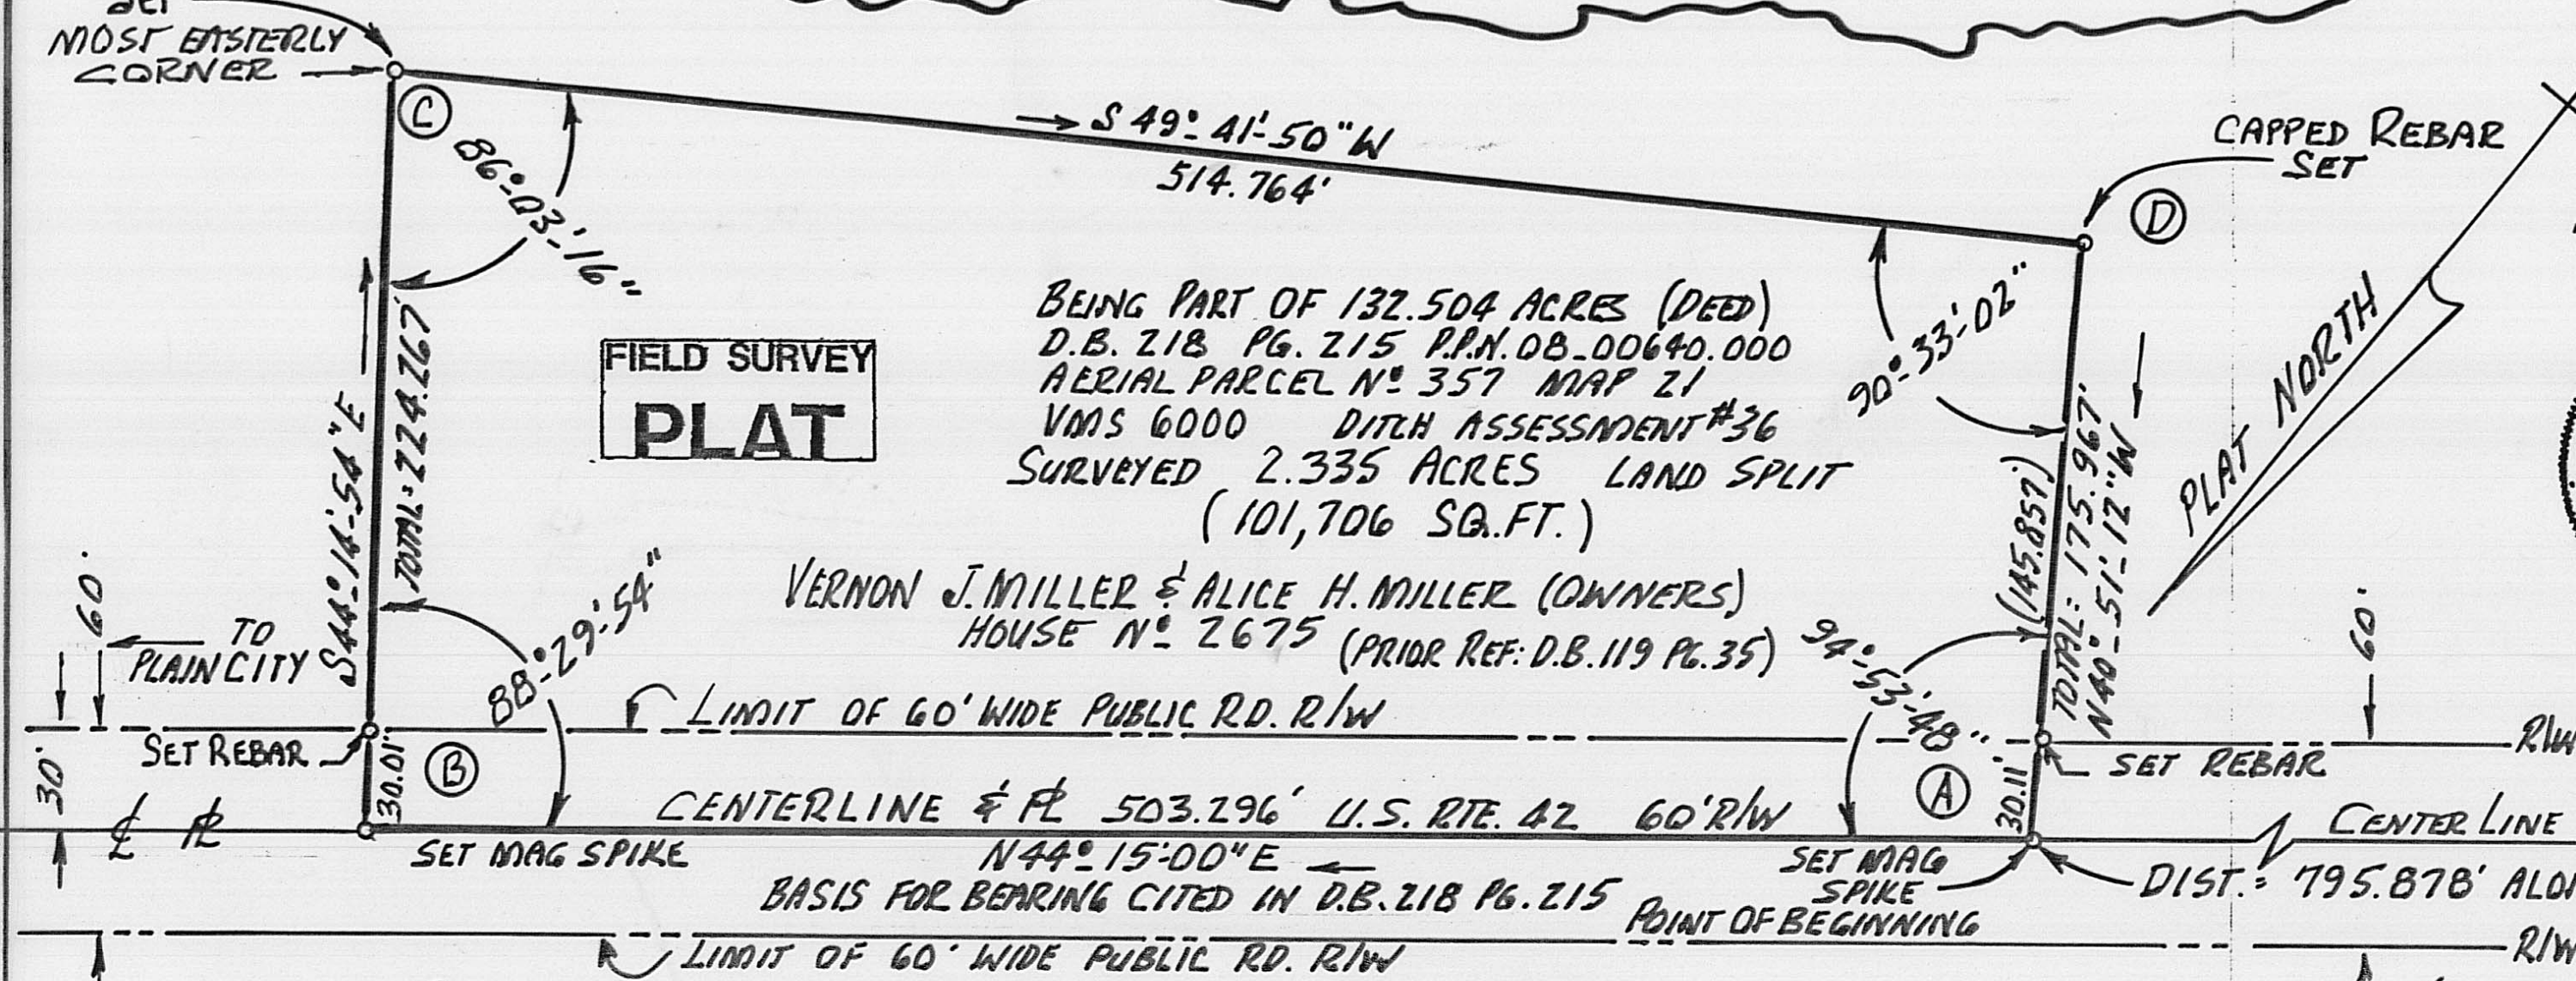 MOST EASTERLY
CORNER
C
86°-03'-16"
S 49°-41'-50" W
514.764'
CAPPED REBAR
SET
D
90°-33'-02"
PLAT NORTH
S44°-14'-54" E
TOTAL: 224.267'
FIELD SURVEY
PLAT
BEING PART OF 132.504 ACRES (DEED)
D.B. 218 PG. 215 P.P.N. 08-00640.000
AERIAL PARCEL Nº 357 MAP 21
VMS 6000 DITCH ASSESSMENT #36
SURVEYED 2.335 ACRES LAND SPLIT
(101,706 SQ.FT.)
VERNON J. MILLER & ALICE H. MILLER (OWNERS)
HOUSE Nº 2675 (PRIOR REF: D.B. 119 PG. 35)
(145.857')
TOTAL: 175.967'
N40°-51'-12" W
60'
TO
PLAIN CITY
88°-29'-54"
94°-53'-48"
60'
LIMIT OF 60' WIDE PUBLIC RD. R/W
R/W
SET REBAR
B
30.01'
30'
A
30.11'
SET REBAR
CENTERLINE & PL 503.296' U.S. RTE. 42 60' R/W
CENTER LINE
CL PL
SET MAG SPIKE
N44°-15'-00" E
SET MAG
SPIKE
POINT OF BEGINNING
DIST.= 795.878'
BASIS FOR BEARING CITED IN D.B. 218 PG. 215
LIMIT OF 60' WIDE PUBLIC RD. R/W
R/W